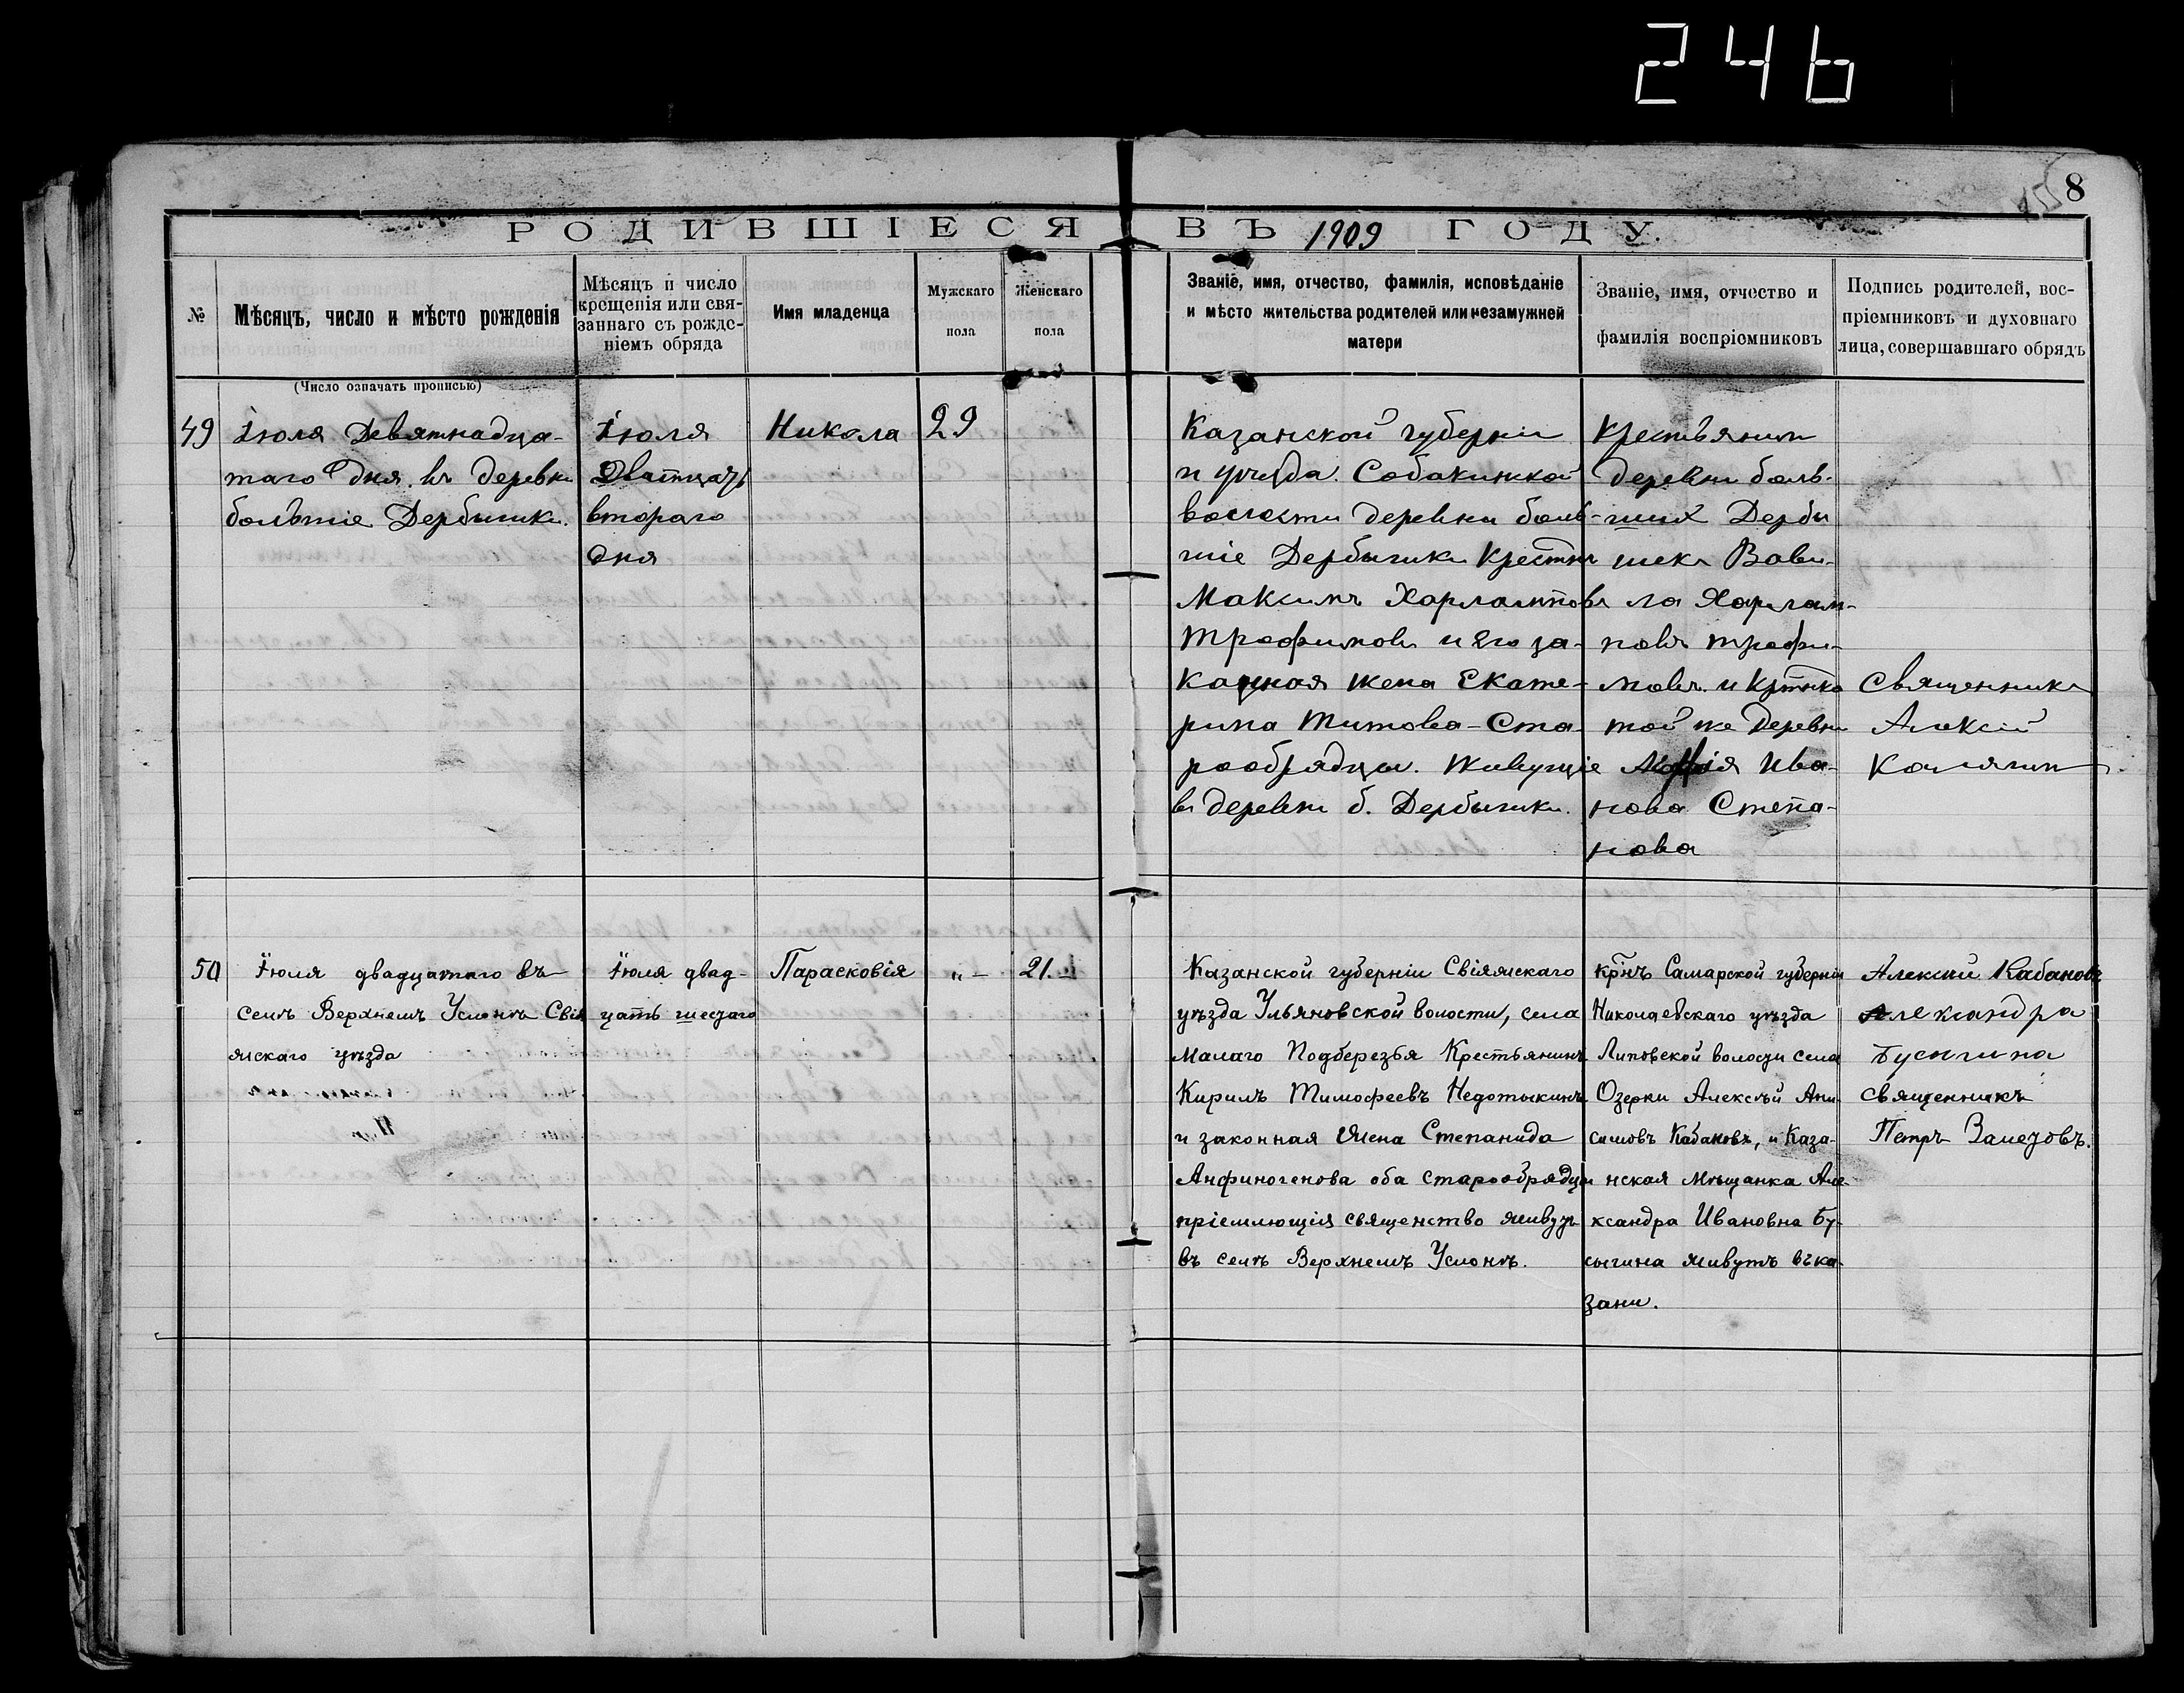 246
8
РОДИВШІЕСЯ ВЪ 1909 ГОДУ.
№
Мѣсяцъ, число и мѣсто рожденія
Мѣсяцъ и число
крещенія или свя-
заннаго съ рожде-
ніемъ обряда
Имя младенца
Мужскаго
пола
Женскаго
пола
Званіе, имя, отчество, фамилія, исповѣданіе
и мѣсто жительства родителей или незамужней
матери
Званіе, имя, отчество и
фамилія воспріемниковъ
Подпись родителей, вос-
пріемниковъ и духовнаго
лица, совершавшаго обрядъ
(Число означать прописью)
49
Іюля Девятнадца-
таго Дня въ деревни
большіе Дербышки.
Іюля
Дватцать
второго
дня
Никола
29
Казанской губерніи
и уѣзда. Собакинской
волости деревни боль-
шіе Дербышки Крестнъ
Максимъ Харлампіевъ
Трофимовъ и его за-
конная жена Екате-
рина Титова-Ста-
рообрядцы. Живущіе
въ деревни б. Дербышки.
Крестьянинъ
деревни боль-
шихъ Дербы
шекъ Вави-
ла Харлам-
повъ трофи-
мовъ. и Кртнка
той же Деревни
Ива-
нова Степа-
нова
Священникъ
Алексій
Калягин
50
Іюля двадцатаго въ
селѣ Верхнемъ Услонѣ Свія
жскаго уѣзда
Іюля двад-
цать шестаго
Парасковія
„ –
21.
Казанской губерніи Свіяжскаго
уѣзда Ульяновской волости, села
Малаго Подберезья Крестьянинъ
Кирилъ Тимофеевъ Недотыкинъ
и законная жена Степанида
Анфиногенова оба старообрядцы
пріемлющія священство живутъ
въ селѣ Верхнемъ Услонѣ.
крнъ Самарской губерніи
Николаевскаго уѣзда
Липовской волости села
Озерки Алексѣй Ани-
симовъ Кабановъ, и Каза-
нская мѣщанка Але-
ксандра Ивановна Бу-
сыгина живутъ въ ка-
зани.
Алексий Кабановъ
Александра
Бусыгина
священникъ
Петръ Залетовъ.